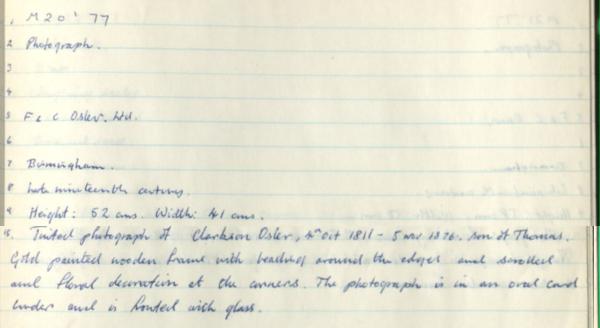 1. M20' 77
2 Photograph.
3
4
5. F & C Osler. Ltd.
6
7 Birmingham.
8 Late nineteenth century.
9 Height: 52 cms. Width: 41 cms.
10. Tinted photograph of Clarkson Osler, 4th Oct 1811 - 5 Nov 1876. Son of Thomas.
Gold painted wooden frame with beading around the edges and scrolled
and floral decoration at the corners. The photograph is in an oval card
under and is fronted with glass.